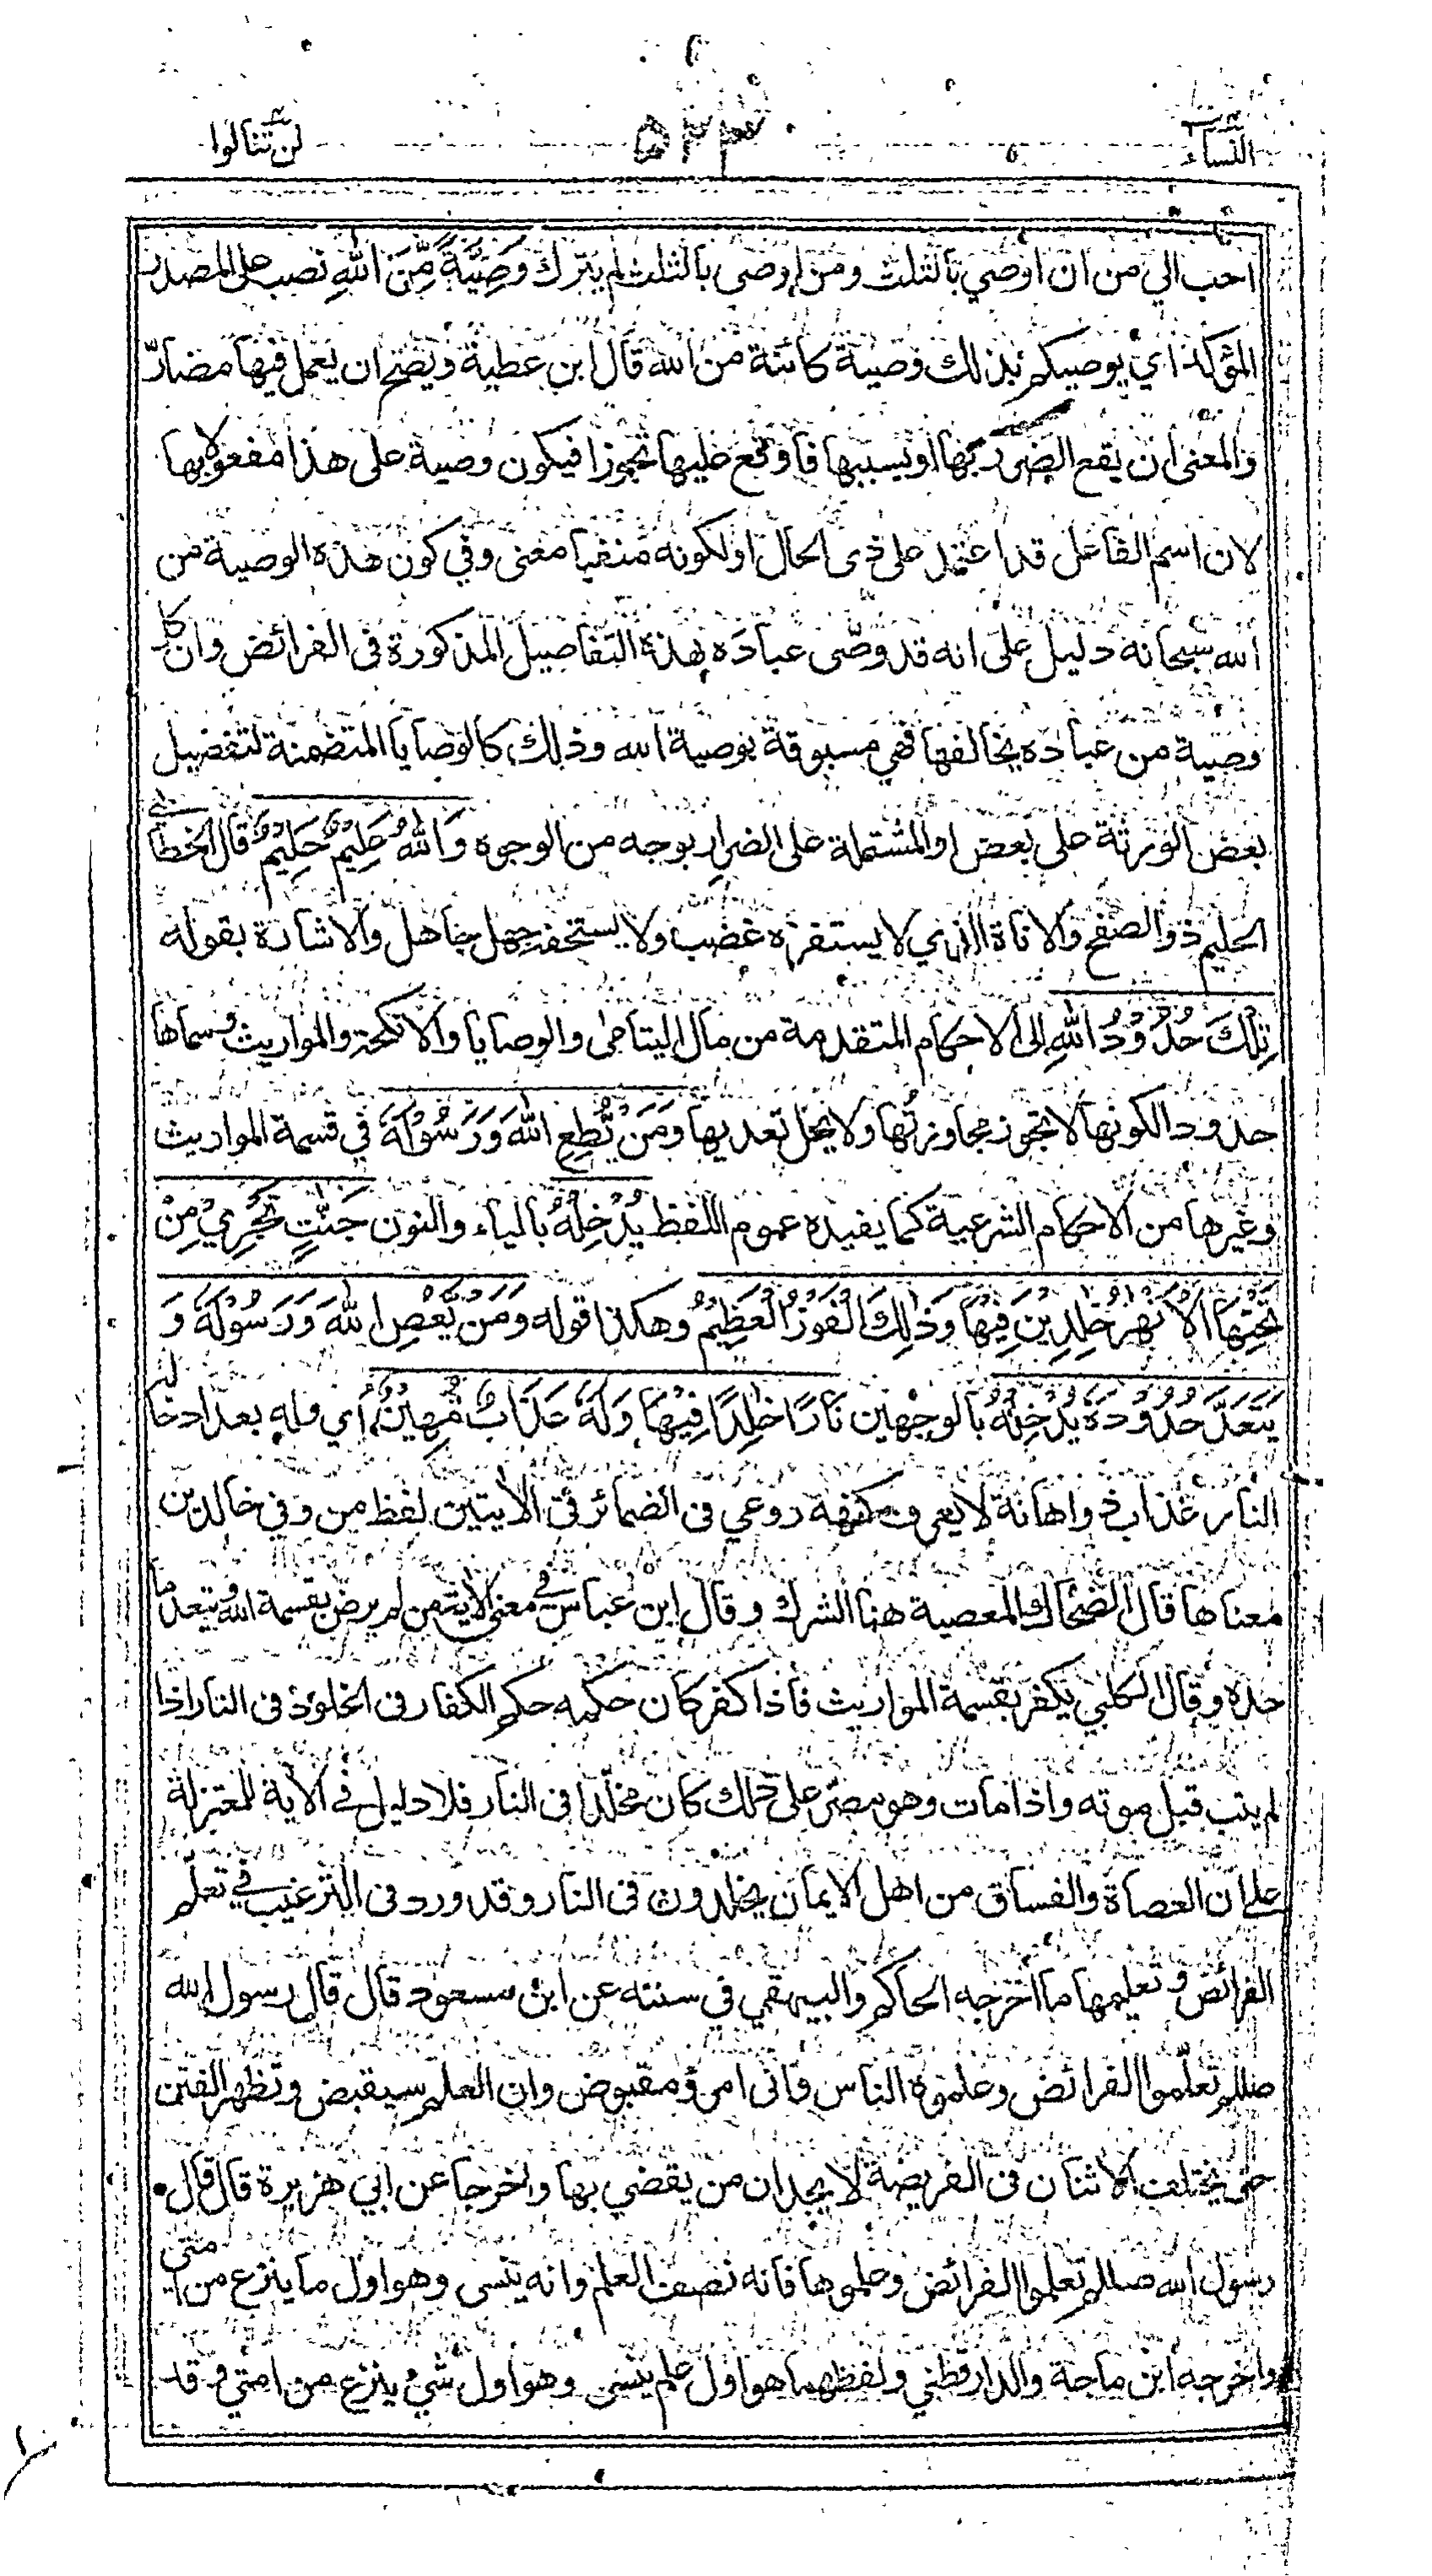 النساء
۵۲۳
لن تنالوا
احب الي من ان اوصي بالثلث ومن اوصى بالثلث لم يترك وَصِيَّةً مِّنَ اللّٰهِ نصب على المصدر
المؤكد اي يوصيكم بذلك وصية كائنة من الله قال ابن عطية ويصح ان يعمل فيها مضارّ
والمعنى ان يقع الضرر بها او بسببها فاوقع عليها تجوزا فيكون وصية على هذا مفعولا بها
لان اسم الفاعل قد اعتمد على ذى الحال او لكونه منفيا معنى وفي كون هذه الوصية من
الله سبحانه دليل على انه قد وصّى عباده بهذه التفاصيل المذكورة فى الفرائض وان كل
وصية من عباده يخالفها فهي مسبوقة بوصية الله وذلك كالوصايا المتضمنة لتفضيل
بعض الورثة على بعض او المشتملة على الضرار بوجه من الوجوه وَاللّٰهُ عَلِيْمٌ حَلِيْمٌ قال الخطابي
الحليم ذو الصفح والاناة الذي لا يستفزه غضب ولا يستخفه جهل جاهل والاشارة بقوله
تِلْكَ حُدُوْدُ اللّٰهِ الى الاحكام المتقدمة من مال اليتامى والوصايا والانكحة والمواريث وسماها
حدودا لكونها لا تجوز مجاوزتها ولا يحل تعديها وَمَنْ يُّطِعِ اللّٰهَ وَرَسُوْلَهٗ في قسمة المواريث
وغيرها من الاحكام الشرعية كما يفيده عموم اللفظ يُدْخِلْهُ بالياء والنون جَنّٰتٍ تَجْرِيْ مِنْ
تَحْتِهَا الْاَنْهٰرُ خٰلِدِيْنَ فِيْهَا وَذٰلِكَ الْفَوْزُ الْعَظِيْمُ وهكذا قوله وَمَنْ يَّعْصِ اللّٰهَ وَرَسُوْلَهٗ وَ
يَتَعَدَّ حُدُوْدَهٗ يُدْخِلْهُ بالوجهين نَارًا خٰلِدًا فِيْهَا وَلَهٗ عَذَابٌ مُّهِيْنٌ اي وله بعد ادخاله
النار عذاب ذو اهانة لا يعرف كنهه روعي فى الضمائر فى الأيتين لفظ من وفي خالدين
معناها قال الضحاك المعصية هنا الشرك وقال ابن عباس في معنى الأية من لم يرض بقسمة الله ويتعد ما
حده وقال الكلبي يكفر بقسمة المواريث فاذا كفر كان حكمه حكم الكفار فى الخلود فى النار اذا
لم يتب قبل موته واذا مات وهو مصر على ذلك كان مخلدا فى النار فلا دليل في الأية للمعتزلة
على ان العصاة والفساق من اهل الايمان يخلدون فى النار وقد ورد فى الترغيب في تعلّم
الفرائض وتعليمها ما اخرجه الحاكم والبيهقي في سننه عن ابن مسعود قال قال رسول الله
صللم تعلّموا الفرائض وعلموه الناس فانى امرؤ مقبوض وان العلم سيقبض وتظهر الفتن
حتى يختلف الاثنان فى الفريضة لا يجدان من يقضي بها واخرجا عن ابي هريرة قال قال
رسول الله صللم تعلموا الفرائض وعلموها فانه نصف العلم وانه ينسى وهو اول ما ينزع من امتي
واخرجه ابن ماجة والدارقطني ولفظهما هو اول علم ينسى وهو اول شيء ينزع من امتي وقد